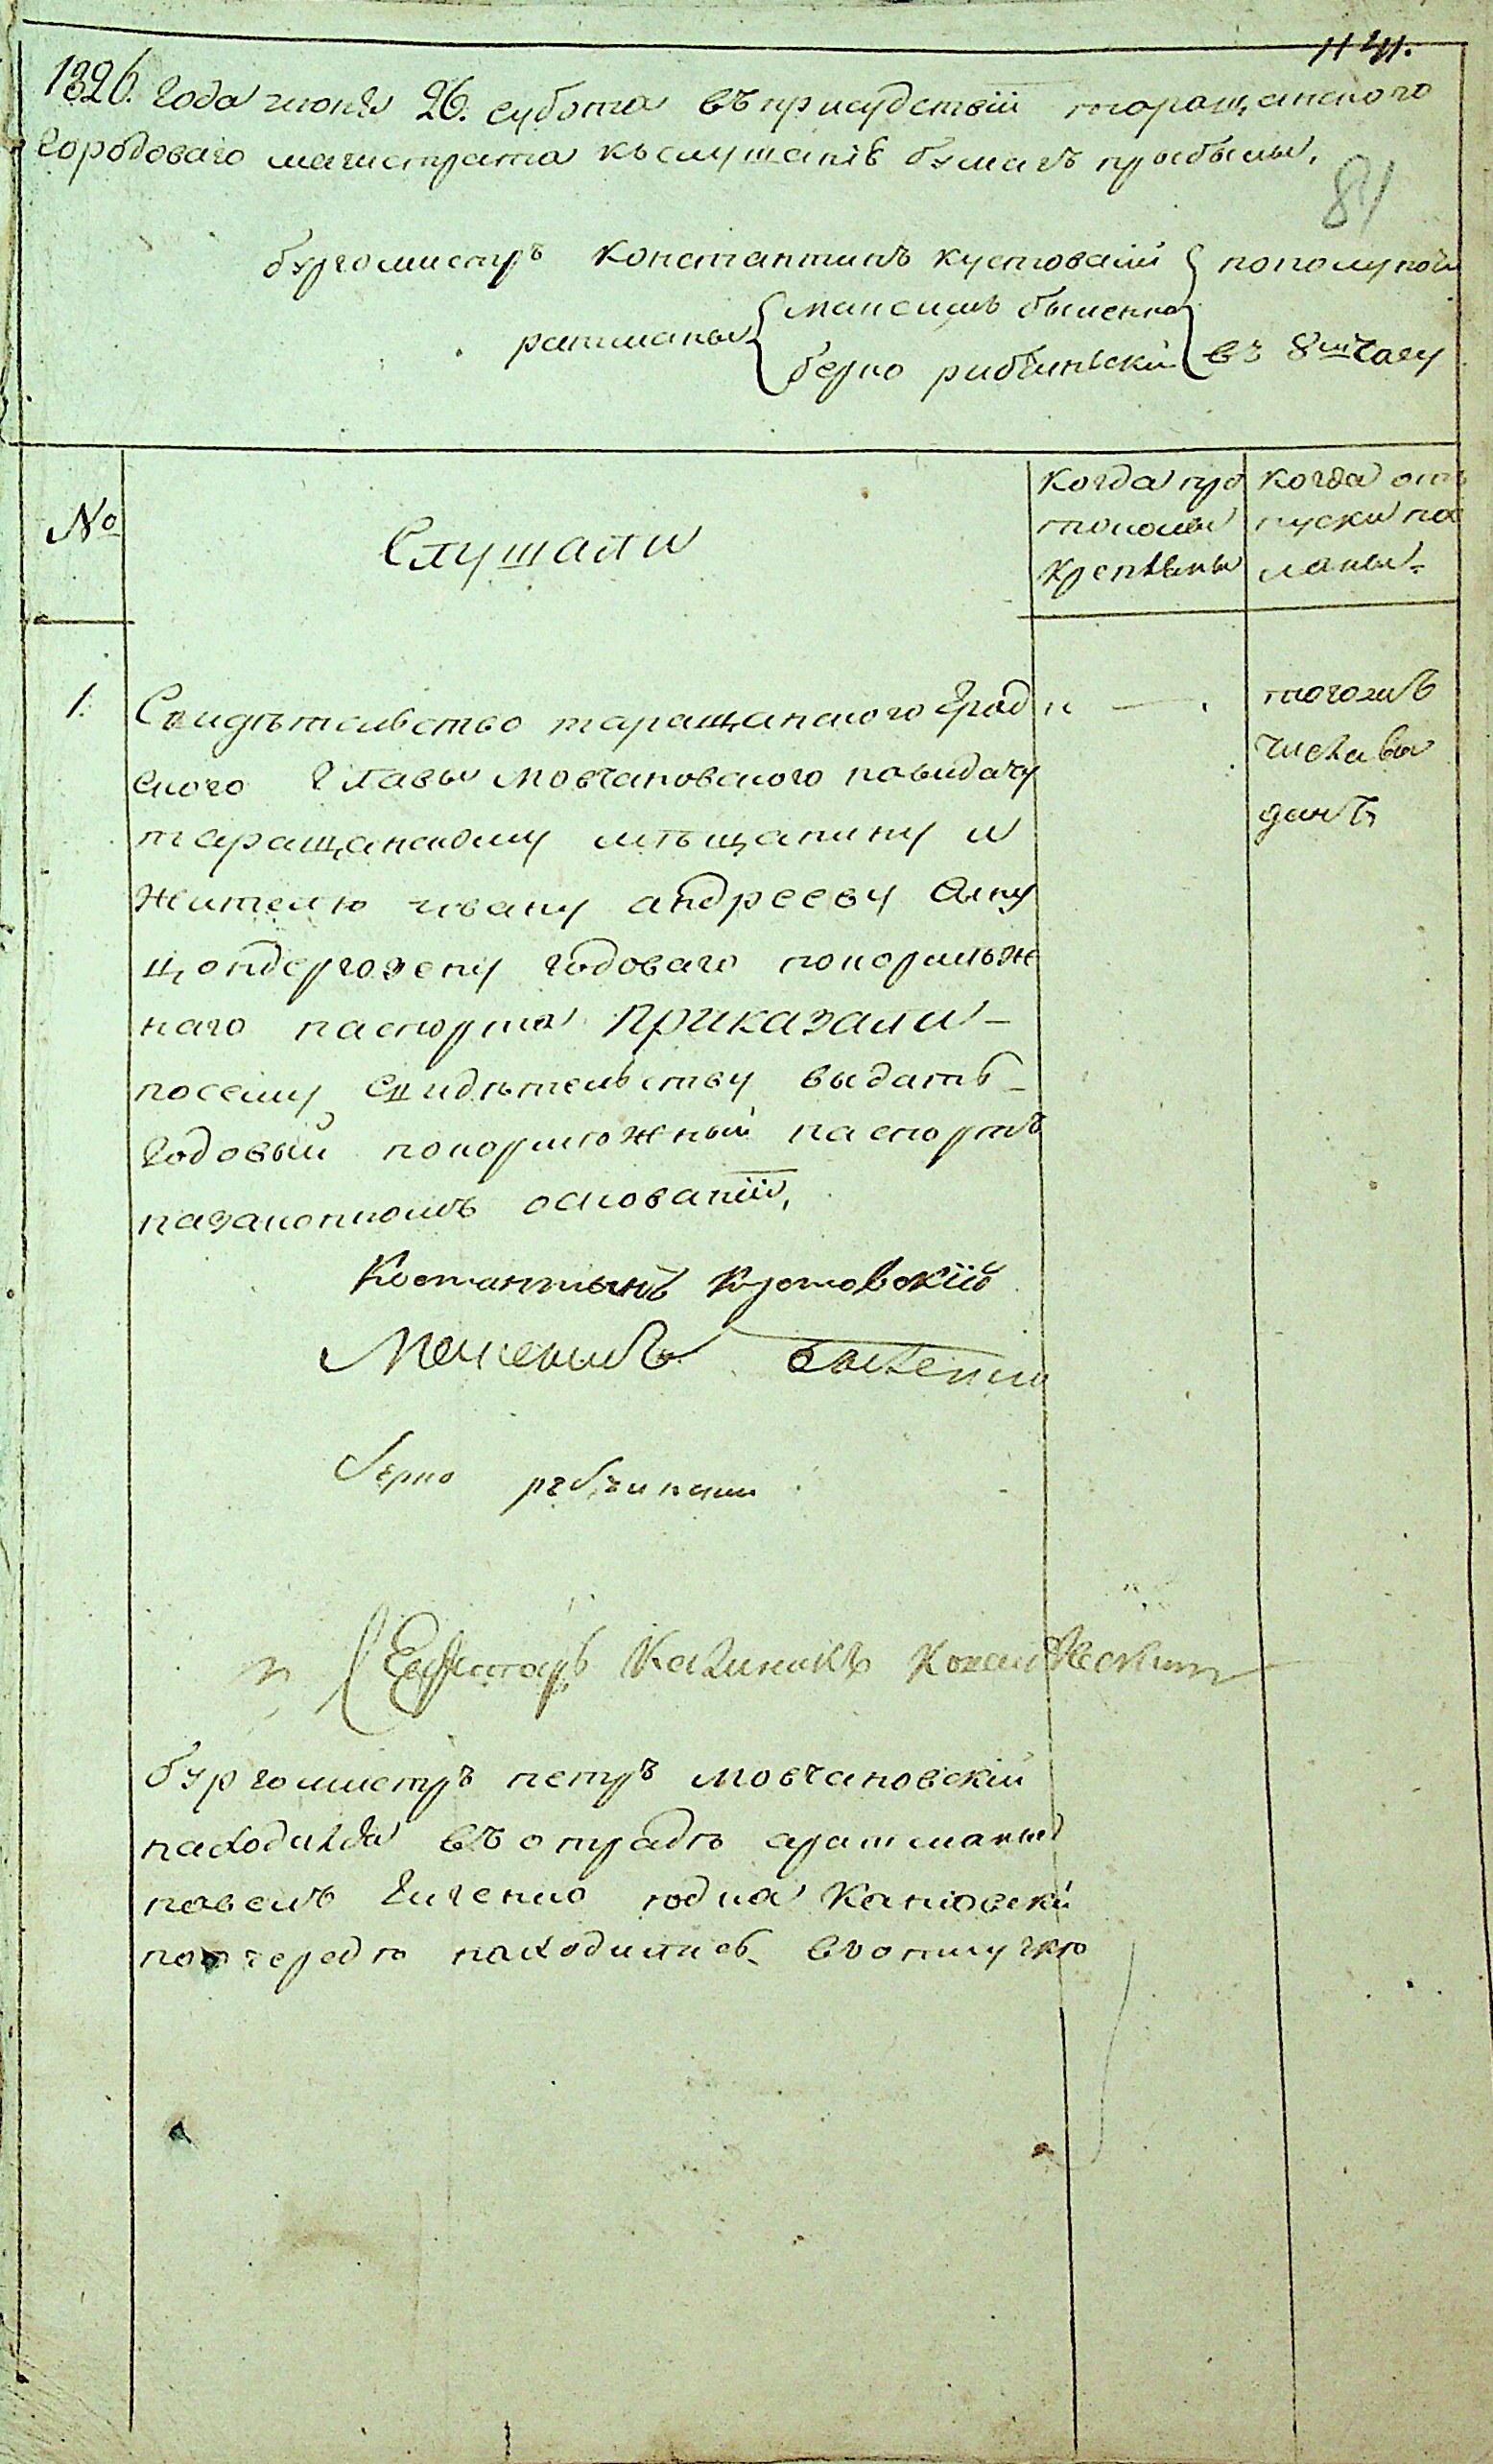 1826. года июня 26. субота въ присудствіи таращанского
городоваго магистрата къслушанію бумагъ прибыли,
81
бургомистръ Константинъ кустовскій пополуночи
ратманы максимъ быченко
берко рибчиньскій въ 8м часу
№
Слушали
когда про
токолы
крепленны
когда от
пуски пос
ланы
1. Свидѣтельство таращанского град
ского главы мовчановского повидачу
таращанскому мѣщанину и
жителю ивану андрееву сыну
годоваго покормеж
наго паспорта Приказали —
посему свидѣтельству выдать
годовый покормежный паспортъ
назаконномъ основаніи,
тогожъ
числа вы
данъ
Костантынъ Кустовскій
Максимъ быченко
берко рибчински
Калиникъ
бургомистръ петръ мовчановскій
находился въ отрядѣ аратманы
павелъ юдка Каневскій
поочередѣ находились воотлучкѣ